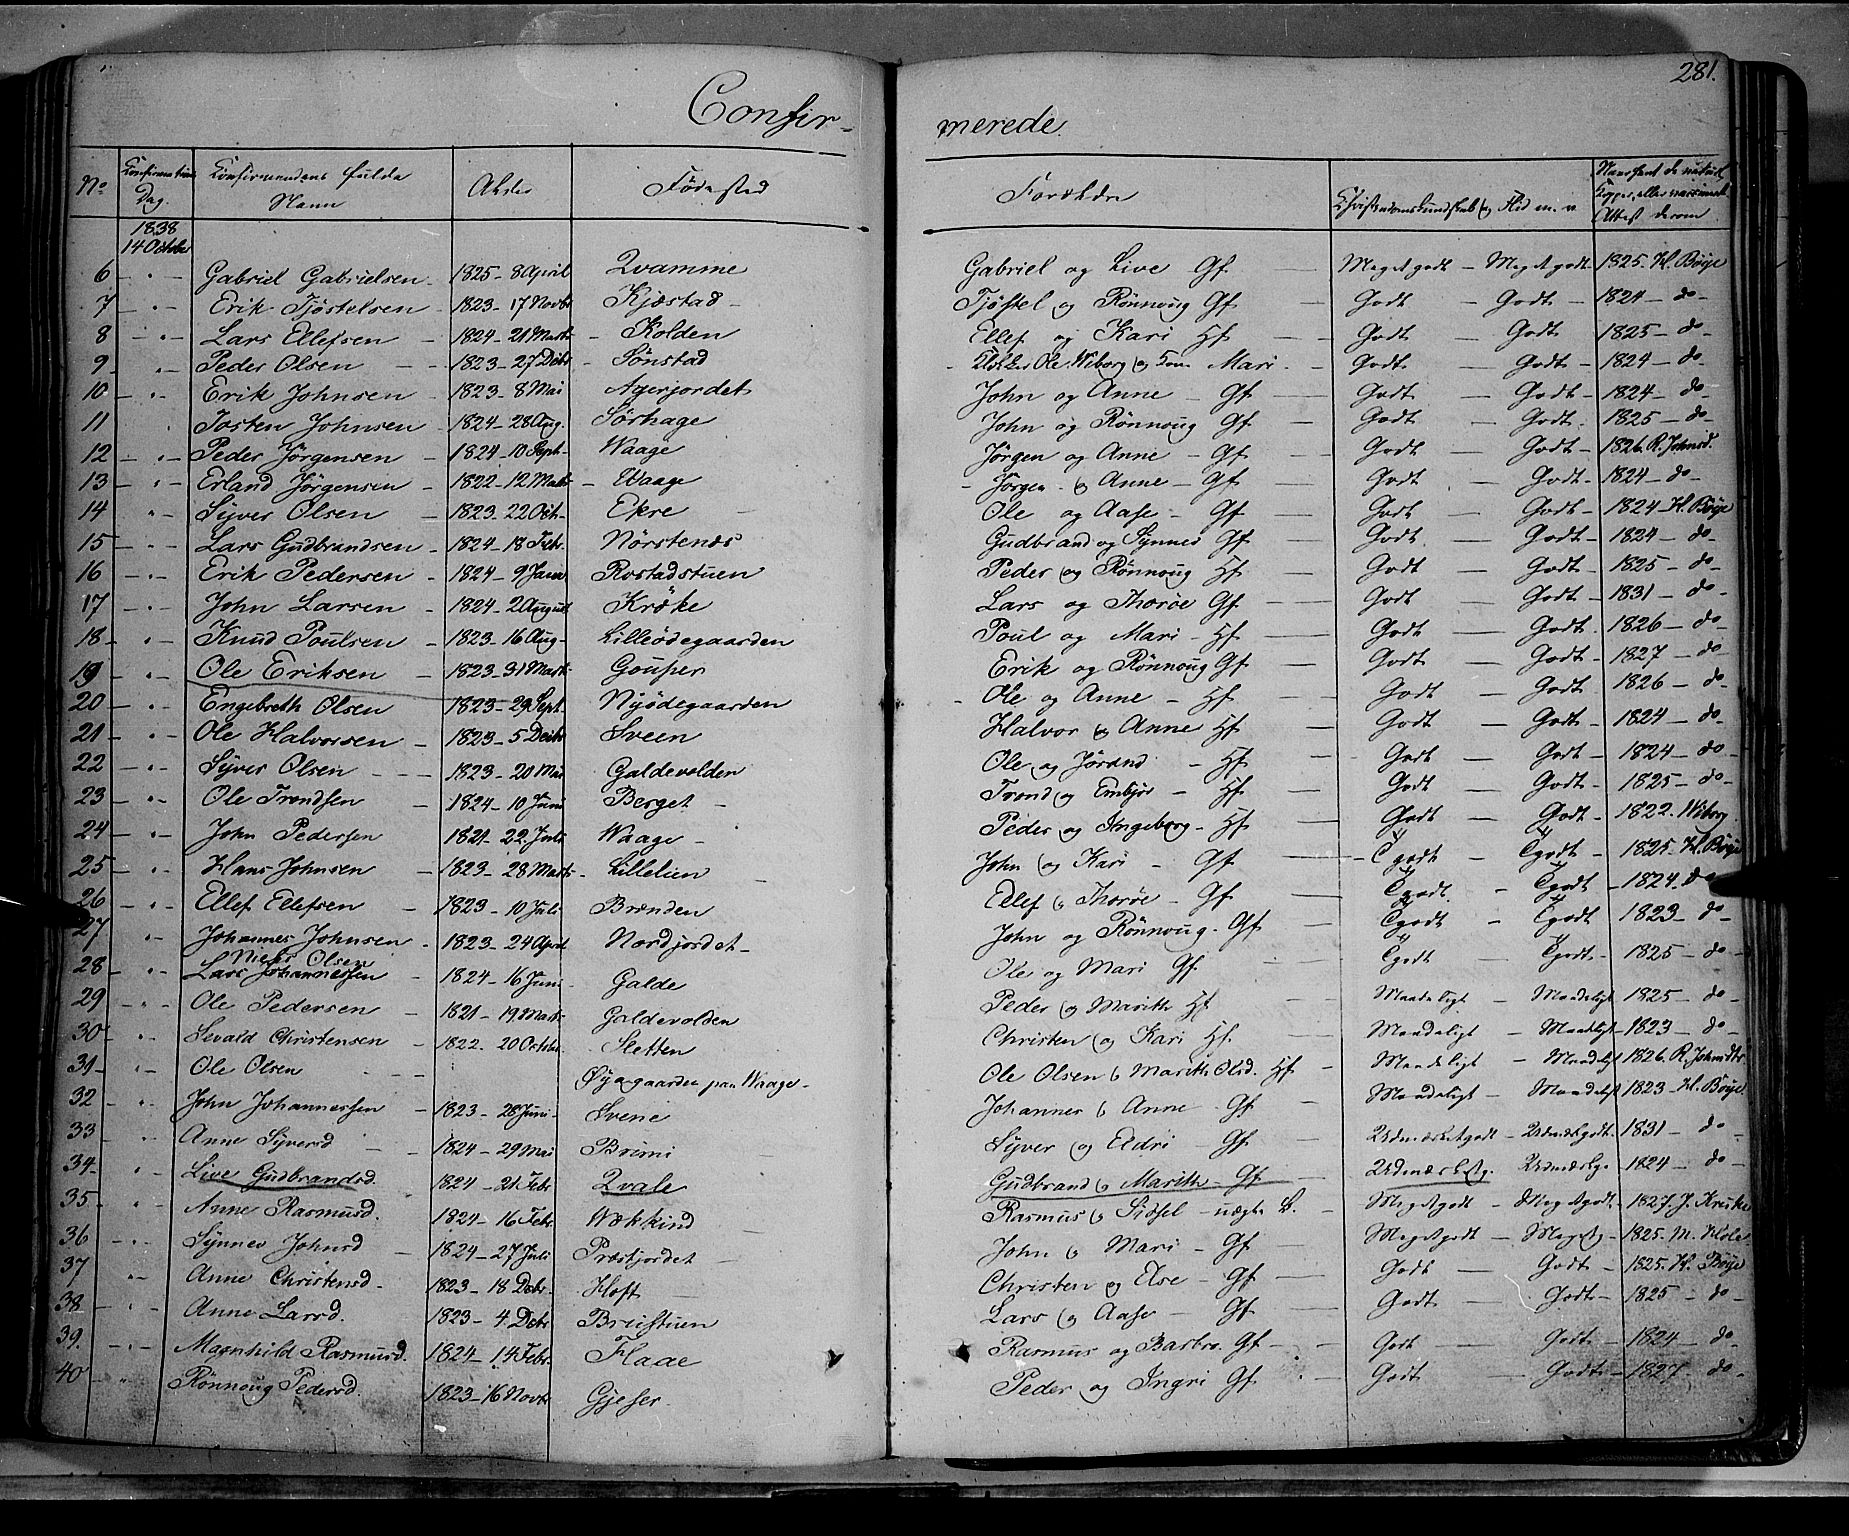 281.
Confir- merede.
No Confirmations Dag. Confirmandens fulde Navn Alder Fødested Forældre Christendomskundskab og Flid m. v. Attest derom
1838
14 Octobr
6 - " - Gabriel Gabrielsen - 1825 - 8 April Qvamme Gabriel og Live Gf. - Meget godt - Meget godt - 1825. H. Bøye
7 - " - Erik Tjøstelsen - 1823 - 17 Novbr Kjæstad - Tjøstel og Rønnoug Gf - Godt - Godt - 1824 - do -
8 - " - Lars Ellefsen - 1824 - 21 Marts - Kolden Ellef og Kari Hf - Godt - Godt - 1825 - do -
9 - " - Peder Olsen - - 1823 - 27 Decbr - Sønstad - Klokker Ole Wiborg og Mari - Godt - Godt - 1824 - do -
10 - " - Erik Johnsen - 1823 - 8 Mai Agerjordet John og Anne - Gf - Godt - Godt - 1824 - do -
11 " Josten Johnsen - 1824 - 28 Aug. Sørhage John og Rønnoug Gf - Godt - Godt - 1825 - do -
12 - " - Peder Jørgensen - 1824 - 10 Sept - Waage Jørgen og Anne - Gf - Godt - Godt - 1826. R. Johnsd.
13 - " - Erland Jørgensen - 1822 - 12 Marts - Waage - Jørgen og Anne - Gf - Godt - Godt - 1824 - do -
14 " Syver Olsen - 1823 - 22 Oct - Ekre - Ole og Aase - Gf - Godt - Godt - 1824 - H. Bøye
15 - " - Lars Gudbrandsen - 1824 - 18 Febr. Nørstenæs Gudbrand og Synnev Gf - Godt - Godt - 1824 - do -
16 - " - Erik Pedersen - 1824 - 9 Janu Rostadstuen Peder og Rønnoug Hf - Godt - Godt - 1825 - do -
17 - " - John Larsen - 1824 - 2 August Kroke Lars og Thorøe Gf - Godt - Godt - 1831 - do -
18 - " Knud Poulsen - 1823 - 16 Aug - Lilleødegaarden Poul og Mari - Hf - Godt - Godt - 1826 - do -
19 - " Ole Eriksen - 1823 - 31 Marts - Gouper Erik og Rønnoug Gf - Godt - Godt - 1827 - do -
20 - " Engebreth Olsen 1823 - 29 Sept - Nyødegaarden - Ole og Anne - Hf - Godt - Godt - 1826 - do
21 - " - Ole Halvorsen - 1823 - 5 Decbr Sveen Halvor og Anne Hf - Godt - Godt - 1824 - do
22 - " - Syver Olsen - - - 1823 - 20 Mai Galdevolden Ole og Jørand - Hf - Godt - Godt - 1824 - do
23 - " Ole Trondsen - 1824 - 10 Juni Berget - Trond og Embjør - Hf - Godt - Godt - 1825 - do
24 - " John Pedersen 1821 - 22 Juli Waage - Peder og Ingeborg - Hf - Godt - Godt - 1822. Wiborg
25 - " Hans Johnsen - 1823 - 28 Marts - Lillelien - John og Kari - Gf - - Tgodt - Tgodt - 1825 - H. Bøye
26 - " - Ellef Ellefsen - 1823 - 10 Juli Brænden Ellef og Thorøe - Gf - Tgodt. - Tgodt - 1824. do
27 " Johannes Johnsen - 1823 - 24 April Nordjordet - John og Rønnoug - Gf - Tgodt - Tgodt - 1823 - do
Niels Olsen
28 - " Lars Johannessen - 1824 - 16 Juni - Galde Ole og Mari Gf. - Tgodt - Tgodt - 1825 - do
29 - " - Ole Pedersen - 1821 - 19 Marts - Galdevolden Peder og Marith Hf - Maadeligt - Maadeligt 1825 - do -
30 - " - Sevald Christensen 1822. 20 Octobr. - Sletten Christen og Kari Hf. - Maadeligt - Maadeligt - 1823 - do -
31 - " Ole Olsen - - - Øygaarden paa Waage - Ole Olsen og Marith Olsd. Hf - Maadeligt - Maadeligt 1826. R. Johnsdtr
32 " John Johannessen - 1823 - 28 Juni - Svene Johannes og Anne - Gf - Maadeligt - Maadeligt 1823 - H. Bøye
33 " Anne Syversd - - 1824 - 29 Mai Brimi - Syver og Eldri - Gf - Udmærket godt - Udmærket godt. 1831 - do
34 - " Live Gudbrandsd. 1824 - 21 Febr Qvale Gudbrand og Marith - Gf - Udmærket g. Udmærket g - 1824 - do -
35 " Anne Rasmusd. 1824 - 16 Febr. Wækkind Rasmus og Sidsel - uægte B. - Meget godt - Meget godt. - 1827. J. Kruke
36 - " - Synnev Johnsd - 1824 - 27 Juli - Præstjordet - John og Mari - Gf - Meget godt - Meget g - 1825. M. Hole
37 " - Anne Christensd. - 1823 - 18 Decbr. Hoft - Christen og Else - Gf - Godt - Godt - 1825. H. Bøye
38 - " - Anne Larsd. 1823 - 4 Decbr Bristuen Lars og Aase - Gf - Godt - Godt - 1825 - do -
39. - " - Magnhild Rasmusd. 1824 - 14 Febr. Flaae Rasmus og Barbro. Gf - Godt - Godt - 1824 - do
40 " Rønnoug Pedersd. 1823 - 16 Novbr Gjeser. Peder og Ingri Gf. - Godt - Godt - 1827. do -